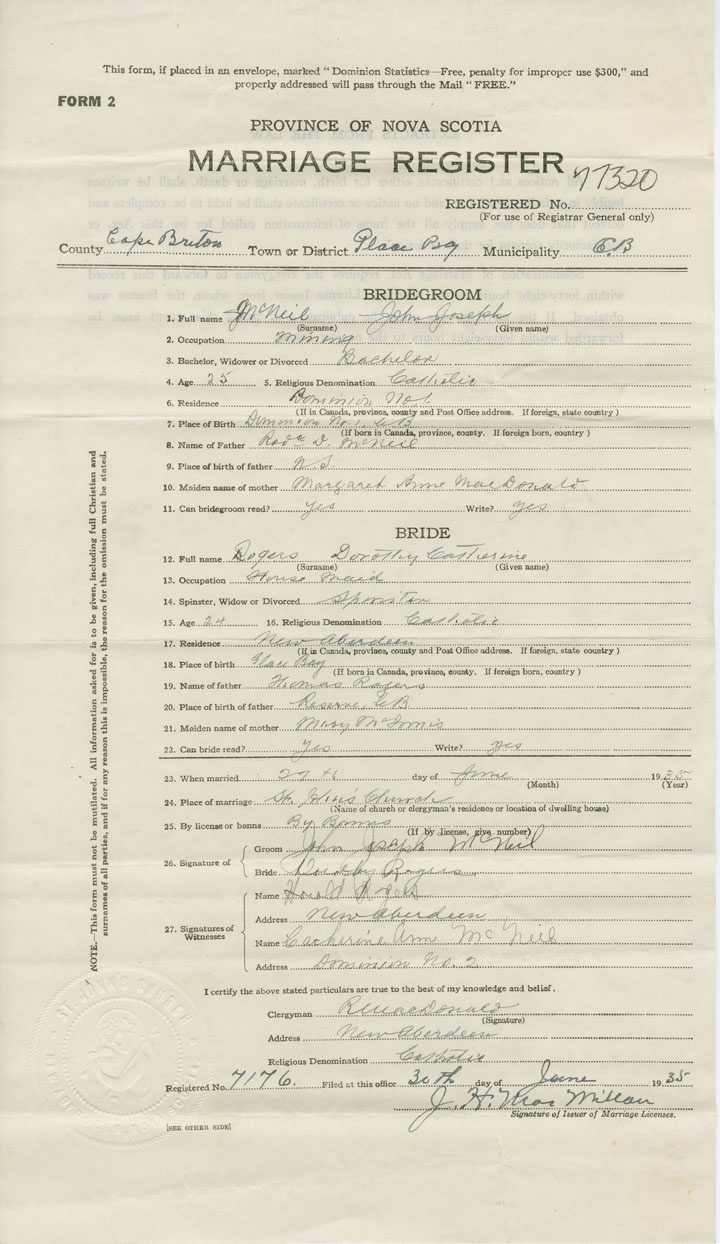 This form, if placed in an envelope, marked "Dominion Statistics—Free, penalty for improper use $300," and
properly addressed will pass through the Mail "FREE."
FORM 2
PROVINCE OF NOVA SCOTIA
MARRIAGE REGISTER
77320
REGISTERED No.
(For use of Registrar General only)
County Cape Briton Town or District Glace Bay Municipality C.B
BRIDEGROOM
1. Full name McNeil John Joseph
(Surname) (Given name)
2. Occupation mining
3. Bachelor, Widower or Divorced Bachelor
4. Age 25 5. Religious Denomination Catholic
6. Residence Dominion No. 1
(If in Canada, province, county and Post Office address. If foreign, state country)
7. Place of Birth Dominion No. 1. C.B
(If born in Canada, province, county. If foreign born, country)
8. Name of Father Rodk D. McNeil
9. Place of birth of father N.S.
10. Maiden name of mother Margaret Anne MacDonald
11. Can bridegroom read? yes Write? yes
BRIDE
12. Full name Rogers Dorothy Catherine
(Surname) (Given name)
13. Occupation House maid
14. Spinster, Widow or Divorced
15. Age 24 16. Religious Denomination Catholic
17. Residence New Aberdeen
(If in Canada, province, county and Post Office address. If foreign, state country)
18. Place of birth Glace Bay
(If born in Canada, province, county. If foreign born, country)
19. Name of father Thomas Rogers
20. Place of birth of father Reserve, C.B
21. Maiden name of mother Mary
22. Can bride read? yes Write? yes
23. When married 27th day of June 1935
(Month) (Year)
24. Place of marriage St. John's Church
(Name of church or clergyman's residence or location of dwelling house)
25. By license or banns By Banns
(If by license, give number)
26. Signature of
Groom John Joseph McNeil
Bride Dorothy Rogers
27. Signatures of Witnesses
Name Harold Rogers
Address New Aberdeen
Name Catherine Ann McNeil
Address Dominion No. 2
I certify the above stated particulars are true to the best of my knowledge and belief.
Clergyman MacDonald
(Signature)
Address New Aberdeen
Religious Denomination Catholic
Registered No. 7176. Filed at this office 30th day of June 1935
J. H. MacMillan
Signature of Issuer of Marriage Licenses.
[SEE OTHER SIDE]
NOTE.—This form must not be mutilated. All information asked for is to be given, including full Christian and
surnames of all parties, and if for any reason this is impossible, the reason for the omission must be stated.